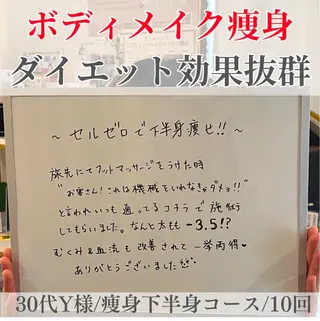 ボディメイク痩身
ダイエット効果抜群
～ セルゼロで下半身痩せ!! ～
旅先にてフットマッサージをうけた時
"お客さん!これは機械をいれなきゃダメョ!!"
と言われいつも通ってるコチラで施術
してもらいました。なんと太もも -3.5!?
むくみ&血流も改善されて一挙両得
ありがとうございました
30代Y様/痩身下半身コース/10回